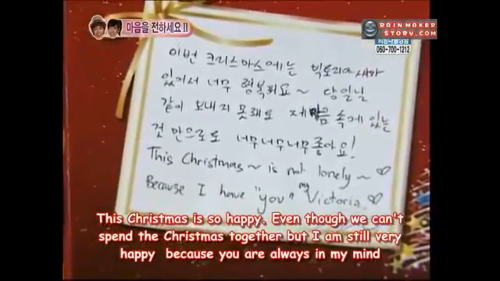 마음을 전하세요!!
RAINMAKER
STORY.COM
060-700-1212
이번 크리스마스에는 빅토리아씨가
있어서 너무 행복해요~ 당일날
같이 보내지 못해도 제 맘 속에 있는
것 만으로도 너무너무너무좋아요!
This Christmas ~ is not lonely ~
Because I have "you" my Victoria. ♡
This Christmas is so happy. Even though we can't
spend the Christmas together but I am still very
happy because you are always in my mind